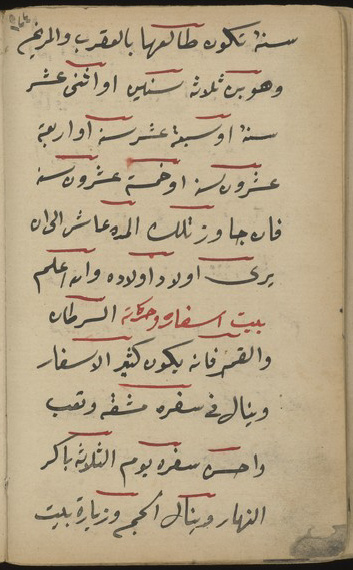 سنة تكون طالعها بالعقرب والمريخ
وهو برج ثلاثة سنين او اثنى عشر
سنة او سبعة عشر سنة او اربعة
عشرون سنة او خمسة عشرون سنة
فان جاوز تلك المده عاش الى ان
يرى اولاد اولاده والله اعلم
بيت اسفاره وحركاته السرطان
والقمر فانه يكون كثير الاسفار
وينال في سفره مشقه وتعب
واحسن سفره يوم الثلاثة باكر
النهار وينال الحج وزيارة بيت